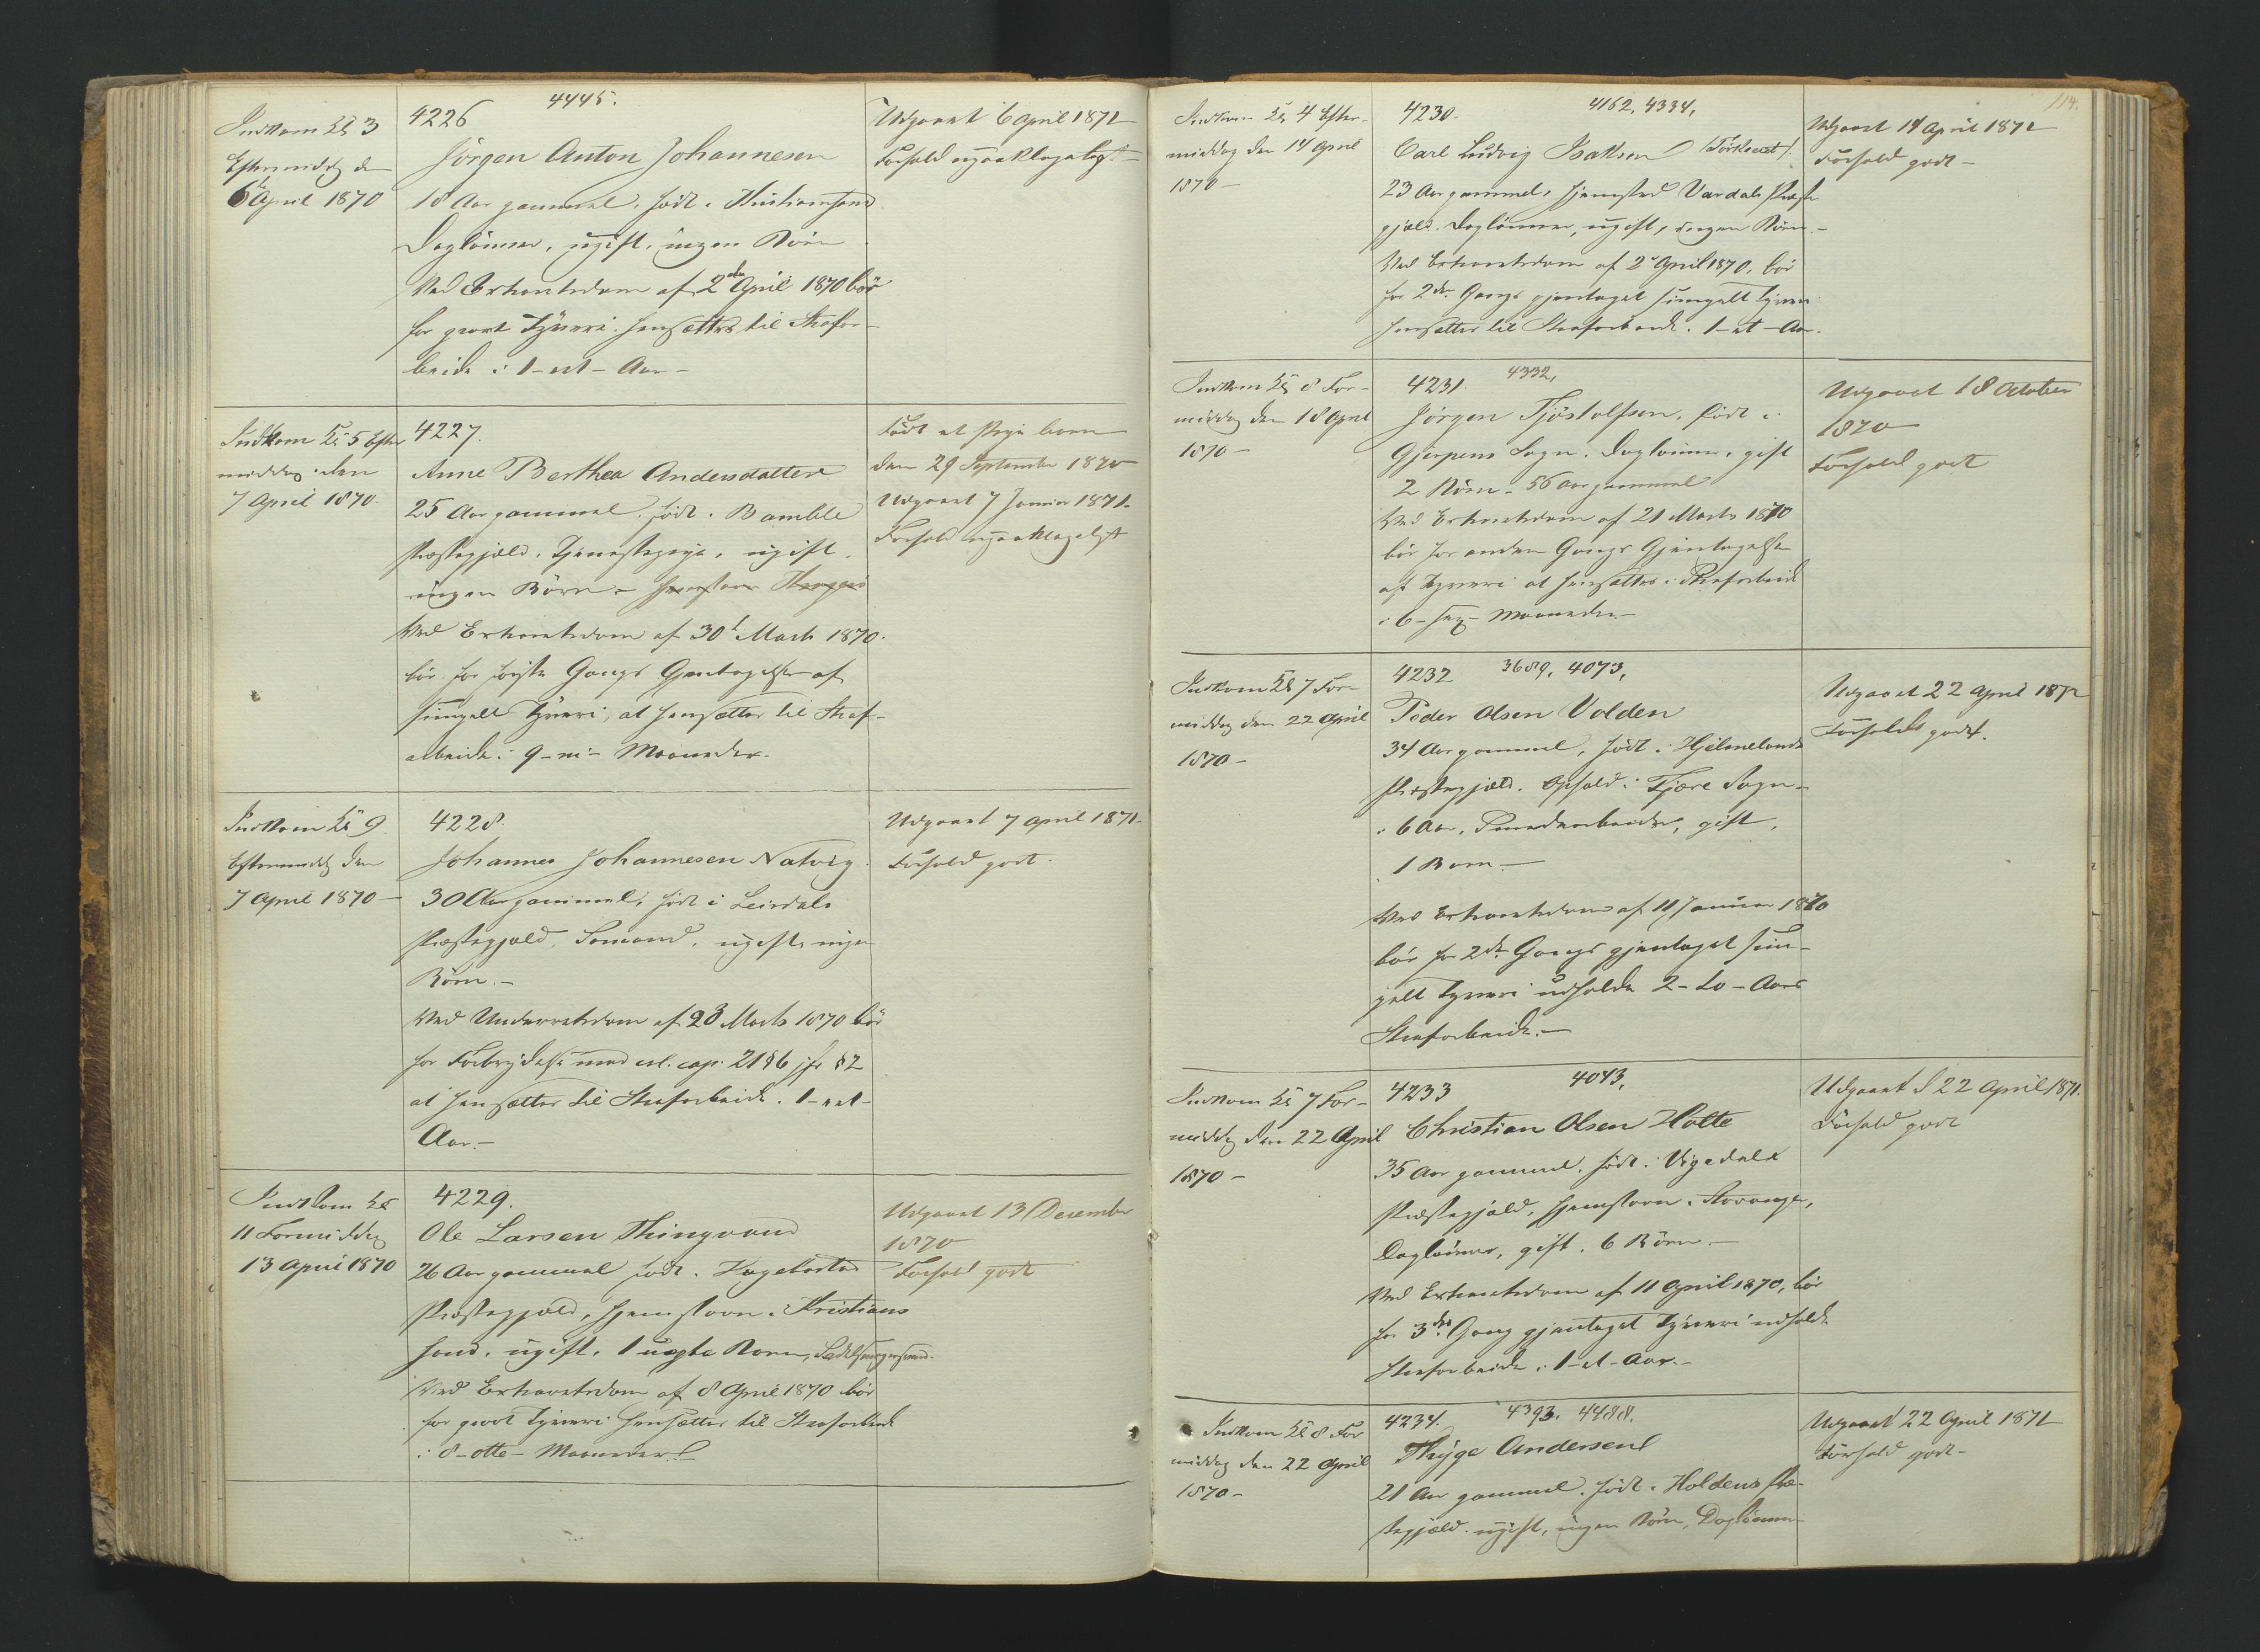 Indkom Kl 3
Eftermiddg den
6 April 1870
4226 4445.
Jörgen Anton Johannesen
18 Aar gammel, født i Kristiansand
Daglönner, ugift, ingen Börn
Ved Extraretsdom af 2den April 1870 bör
for grovt Tyveri hensættes til Strafar-
beide i 1-et-Aar-
Udgaaet 6 April 1871
Forhold upaaklageligt-
Indkom Kl 5 Efter
middag den
7 April 1870.
4227.
Anne Berthea Andersdatter
25 Aar gammel, født i Bamble
Præstegjæld, Tjenestepige, ugift,
ingen Börn-
Ved Extraretsdom af 30t Marts 1870.
bör for förste Gangs Gjentagelse af
simpelt Tyveri, at hensættes til Straf-
arbeide i 9-ni-Maaneder-
Født et Pige barn
den 29 September 1870
Udgaaet 7 Januar 1871.
Forhold upaaklageligt
Indkom Kl 9
Eftermiddg den
7 April 1870-
4228.
Johannes Johannesen Natvig.
30 Aar gammel, født i Leirdals
Præstegjæld, Sömand, ugift, ingen
Börn.-
Ved Underretsdom af 23 Marts 1870 bör
for Forbrydelse mod crl. cap. 21 § 6 jfr § 2
at hensættes til Strafarbeide i 1-eet-
Aar.-
Udgaaet 7 April 1871.
Forhold godt.
Indkom Kl
11 Formiddg
13 April 1870
4229.
Ole Larsen Thingvand
26 Aar gammel født i Hægebostad
Præstegjæld, Hjemstavn i Kristians
sand, ugift, 1 uægte Barn,
Ved Extraretsdom af 8 April 1870 bör
for grovt Tyveri hensættes til Strafarbeide
i 8-otte-Maaneder
Udgaaet 13 December
1870
Forhold godt
114.
Indkom Kl 4 Efter-
middag den 14 April
1870-
4230. 4162, 4334,
Carl Ludvig Isaksen
23 Aar gammel, Hjemsted Vardals Præste
gjæld. Daglönner, ugift, ingen Börn.-
Ved Extraretsdom af 2 April 1870, bör
for 2den Gangs gjentaget simpelt Tyveri
hensættes til Strafarbeide i 1-et-Aar.
Udgaaet 14 April 1871
Forhold godt-
Indkom Kl 8 For-
middag den 18 April
1870-
4231. 4332,
Jörgen Tjöstolfsen, født i
Gjerpens Sogn. Daglönner, gift
2 Börn- 56 Aar gammel
Ved Extraretsdom af 21 Marts 1870
bör for anden Gangs Gjentagelse
af Tyveri at hensættes i Strafarbeide
i 6-sex-Maaneder.-
Udgaaet 18 October
1870
Forhold godt
Indkom Kl 7 For-
middag den 22 April
1870-
4232 3689, 4073,
Peder Olsen Volden
34 Aar gammel, født i Hjelmelands
Præstegjæld. Ophold i Fjære Sogn-
i 6 Aar, gift,
1 Barn-
Ved Extraretsdom af 11 Januar 1870
bör for 2den Gangs gjentaget sim-
pelt Tyveri udholde 2-to-Aars
Strafarbeide.-
Udgaaet 22 April 1872
Forhold godt.
Indkom Kl 7 For-
middg den 22 April
1870-
4233 4043,
Christian Olsen Holte
35 Aar gammel, født i Vigedals
Præstegjæld, Hjemstavn i Stavanger,
Daglönner, gift, 6 Börn-
Ved Extraretsdom af 11 April 1870, bör
for 3die Gang gjentaget Tyveri udholde
Strafarbeide i 1-et-Aar.-
Udgaaet d 22 April 1871.
Forhold godt
Indkom Kl 8 For
middag den 22 April
1870-
4234. 4393. 4488.
Thyge Andersen
21 Aar gammel, født i Holdens Præ-
stegjæld, ugift, ingen Börn, Daglönner-
Udgaaet 22 April 1871
Forhold godt-